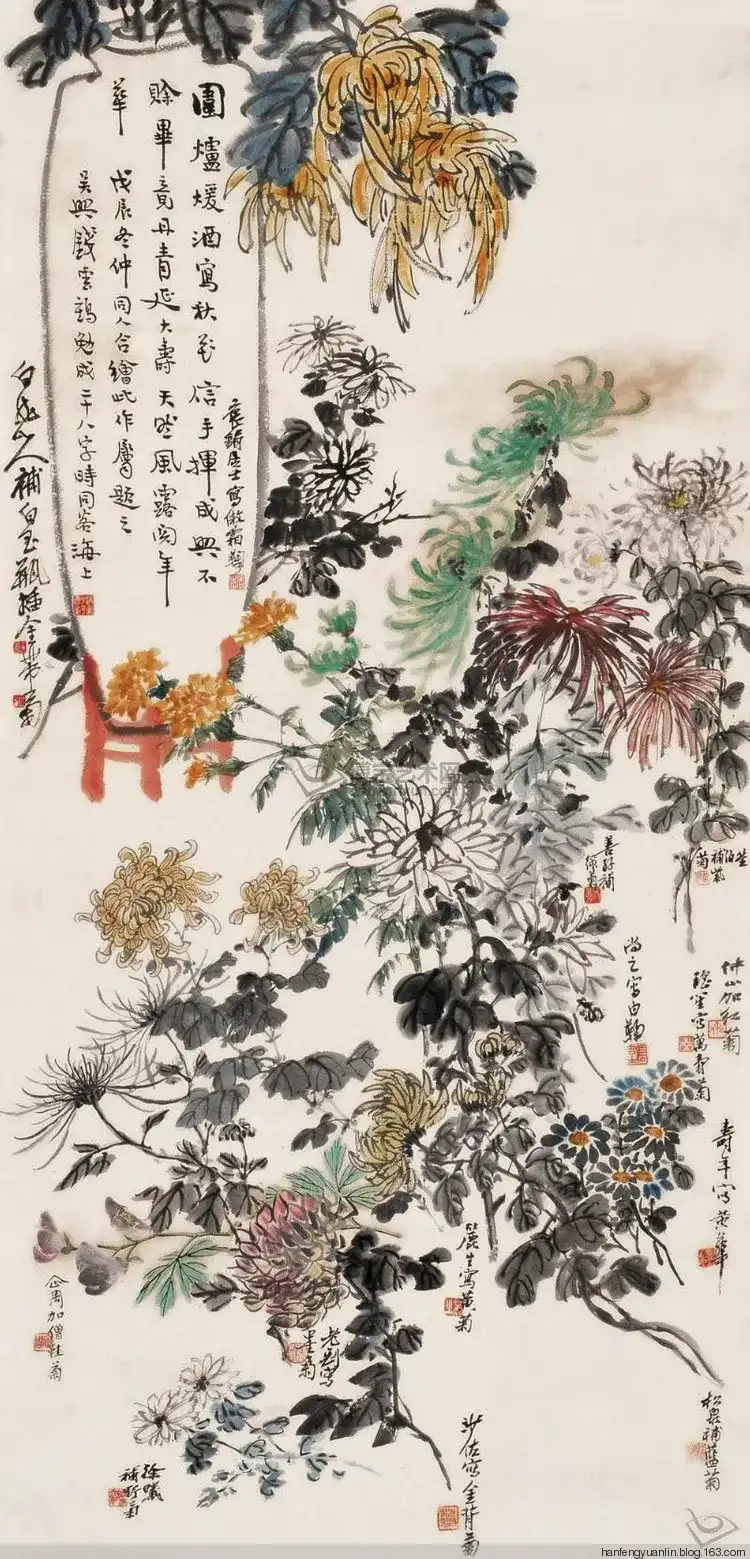 圍爐煖酒寫秋花信手揮成興不
賒畢竟丹青延大壽天然風露閱年
華
戊辰冬仲同人合繪此作屬題之
吳興錢雲鶴勉成二十八字時同客海上
居士寫傲霜菊
山人補白玉瓶插金帶菊
善孖補
綠菊
補紫
菊
尚之寫白鞠
仲山加紅菊
瑤笙寫萬壽菊
壽年寫黃華
麗生寫黃菊
企周加僧鞋菊
墨菊
松泉補藍菊
徐曦
補野菊
少佐寫金背菊
hanfengyuanlin.blog.163.com